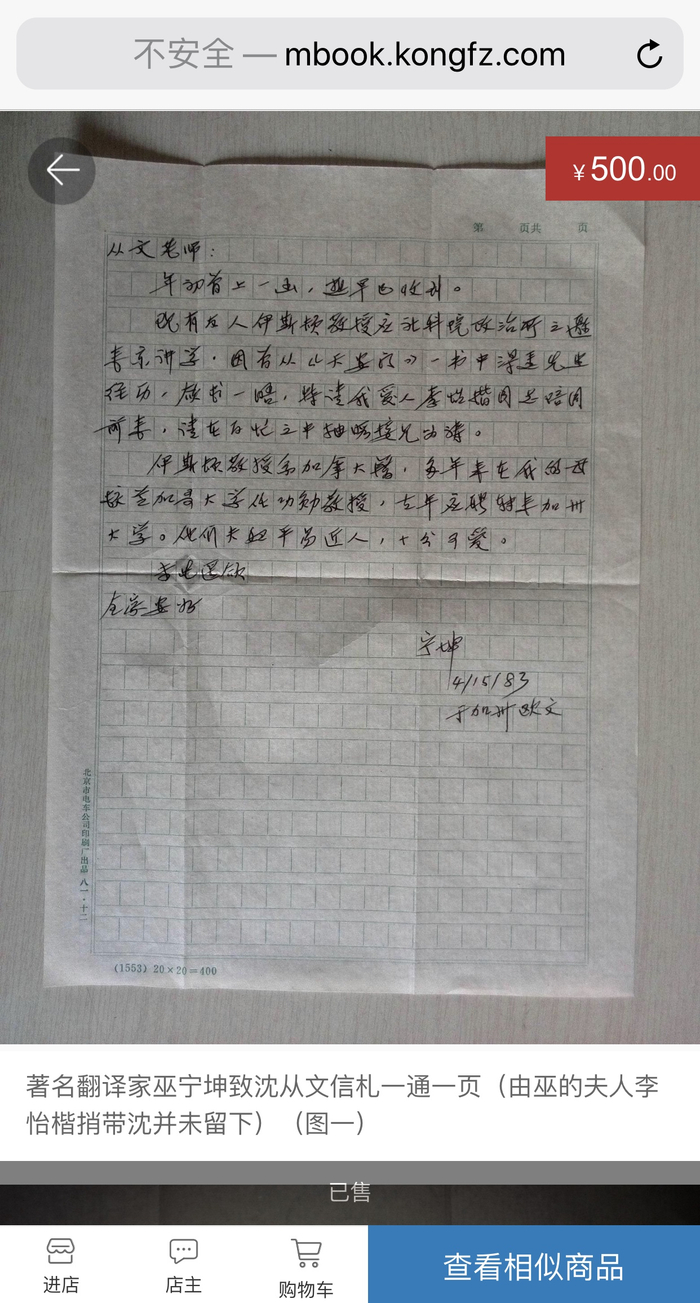 不安全 — mbook.kongfz.com
¥500.00
第 页共 页
从文老师：
年初曾上一函，想早已收到。
现有友人伊斯顿教授应社科院政治所之邀
来京讲学，因有从《天安门》一书中得悉先生
经历，颇想一晤，特请我爱人李怡楷同志陪同
前来，请在百忙之中抽暇接见为祷。
伊斯顿教授系加拿大籍，多年来在我的母
校芝加哥大学任功勋教授，去年应聘转来加州
大学。他们夫妇平易近人，十分可爱。
全家安好
宁坤
4/15/83
于加州欧文
北京市电车公司印刷厂出品 八一·十二
(1553) 20×20=400
著名翻译家巫宁坤致沈从文信札一通一页（由巫的夫人李
怡楷捎带沈并未留下）（图一）
已售
进店
店主
购物车
查看相似商品